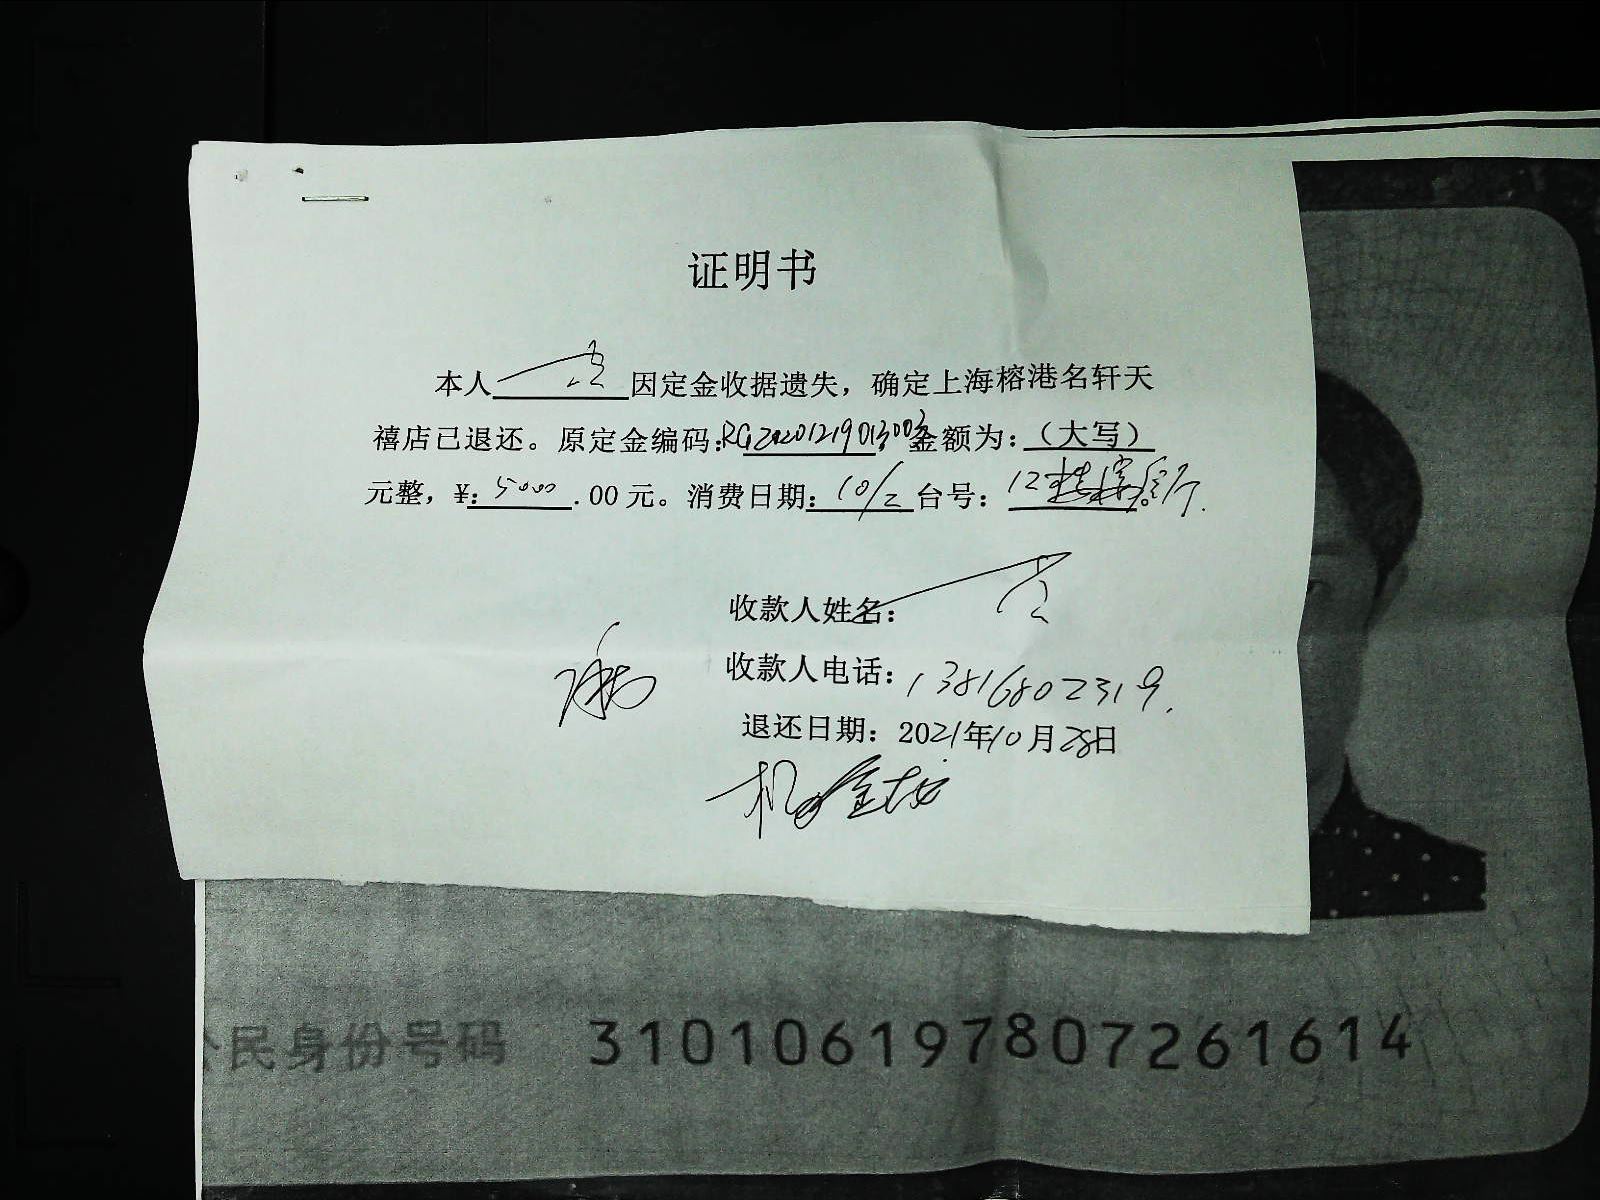 证明书
本人 因定金收据遗失，确定上海榕港名轩天
禧店已退还。原定金编码：RG20201219013003金额为：（大写）
元整，¥：5000.00元。消费日期：10/2台号：12楼宴会厅.
收款人姓名：
收款人电话：13816802319.
退还日期：2021年10月28日
公民身份号码 310106197807261614